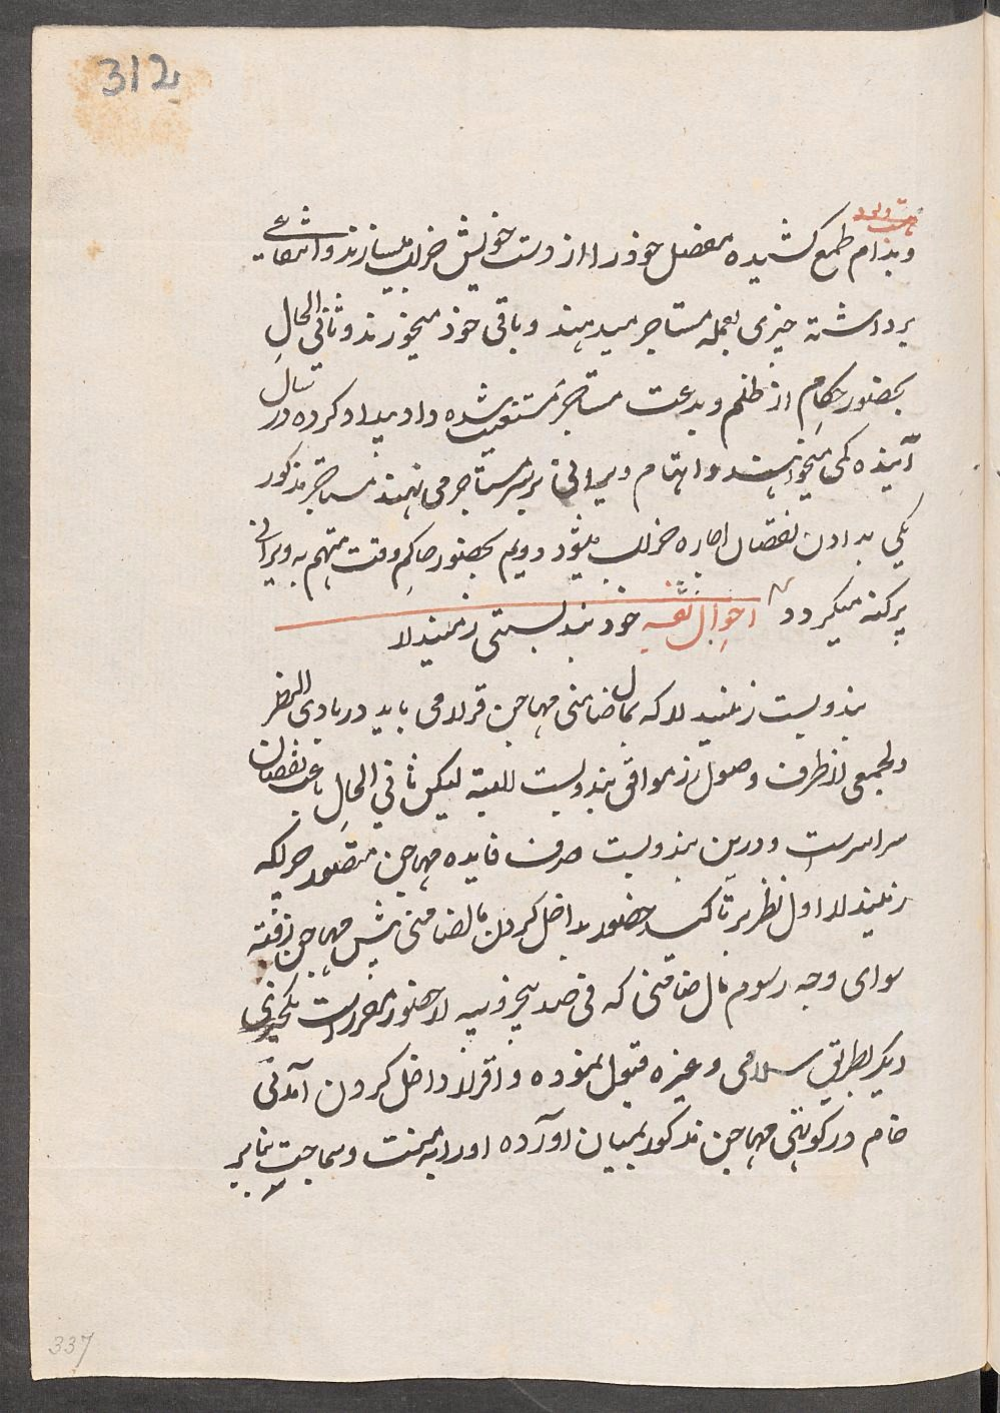 312
وبدام طمع کشیده مفصل خود را از دست خویش خراب میسازند و
برداشته چیزی بعمله مستاجر میدهند و باقی خود میخورند و ثانی الحال
بحضور حکام از ظلم و بدعت مستاجر مستغیث شده داد بیداد کرده در سال
آینده کمی میخواهند و اتهام ویرانی بر سر مستاجر می نهند مستاجر مذکور
یکی بدادن نقصان اجاره خراب میشود دویم بحضور حاکم وقت متهم به ویرانی
پرکنه میگردد احوال خود بندبستی زمیندار
بندوبست زمیندار که بمال ضامنی مهاجن قرار می یابد در بادی النظر
دلجمعی از طرف وصول زر موافق بندوبست البته لیکن ثانی الحال باعث نقصان
سراسرست و درین بندوبست صرف فایده مهاجن متصور چراکه
زمیندار اول نظر بر تاکید حضور بداخل کردن مالضامنی پیش مهاجن رفته
سوای وجه رسوم مال ضامنی که فی صد پنجروپیه از حضور مقررست یکچیزی
دیگر بطریق سلامی وغیره قبول نموده و اقرار داخل کردن آمدنی
خام در کوتهی مهاجن مذکور بمیان آورده او را به منت و سماجت بنابر
337